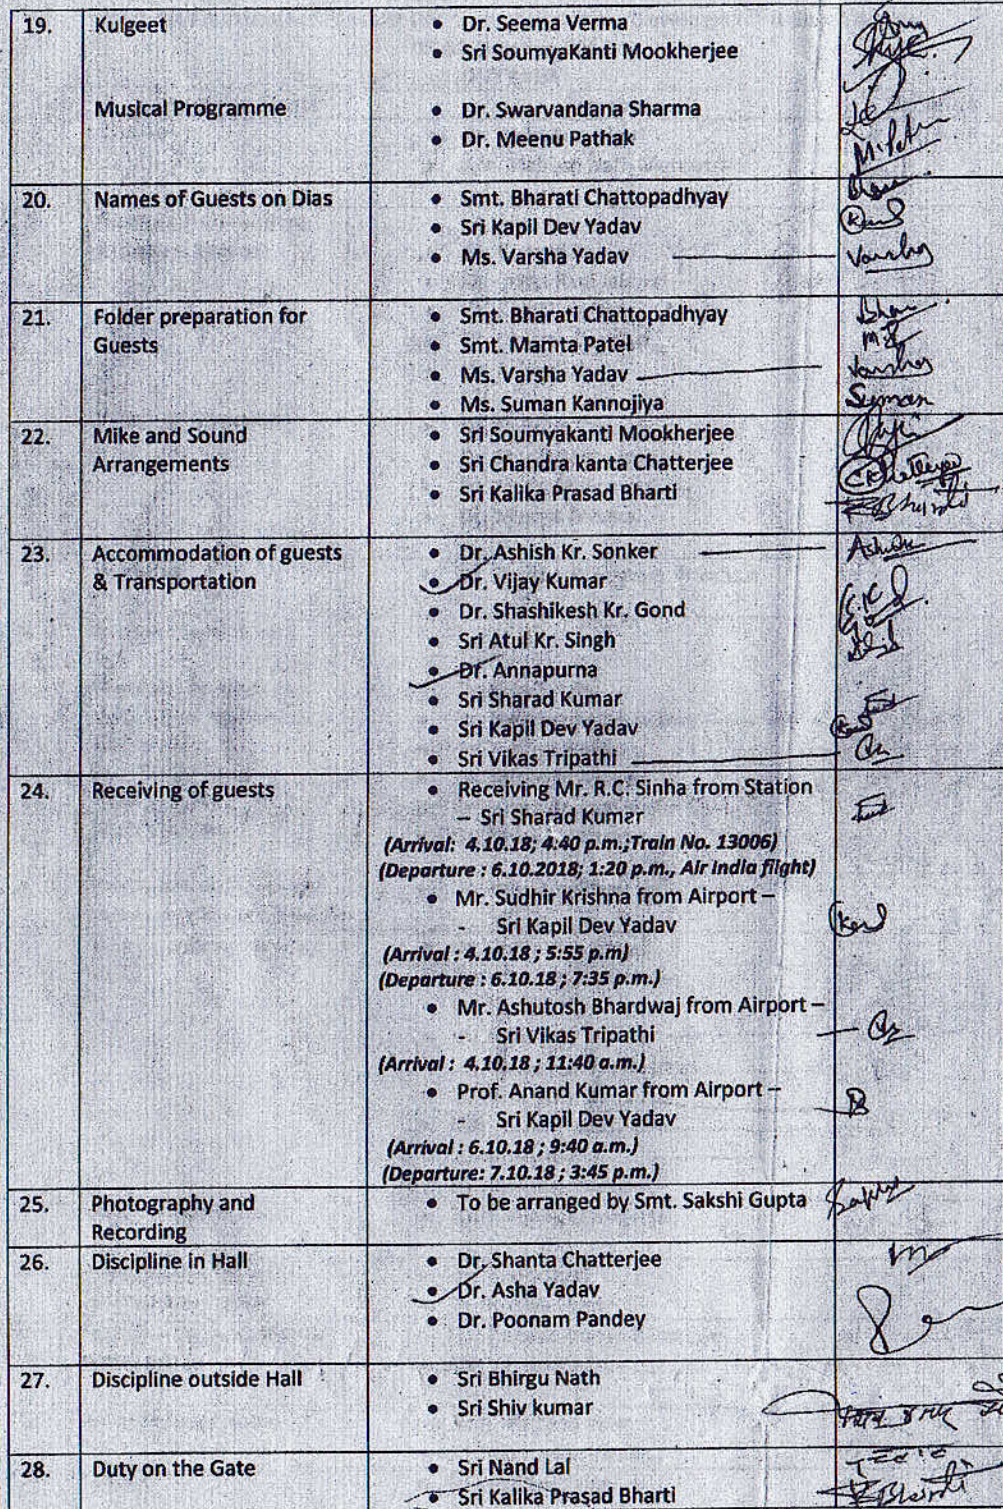 19. Kulgeet
• Dr. Seema Verma
• Sri SoumyaKanti Mookherjee
Musical Programme
• Dr. Swarvandana Sharma
• Dr. Meenu Pathak
20. Names of Guests on Dias
• Smt. Bharati Chattopadhyay
• Sri Kapil Dev Yadav
• Ms. Varsha Yadav
Varsha
21. Folder preparation for
Guests
• Smt. Bharati Chattopadhyay
• Smt. Mamta Patel
• Ms. Varsha Yadav
• Ms. Suman Kannojiya
Varsha
Suman
22. Mike and Sound
Arrangements
• Sri Soumyakanti Mookherjee
• Sri Chandra kanta Chatterjee
• Sri Kalika Prasad Bharti
23. Accommodation of guests
& Transportation
• Dr. Ashish Kr. Sonker
• Dr. Vijay Kumar
• Dr. Shashikesh Kr. Gond
• Sri Atul Kr. Singh
• Dr. Annapurna
• Sri Sharad Kumar
• Sri Kapil Dev Yadav
• Sri Vikas Tripathi
24. Receiving of guests
• Receiving Mr. R.C. Sinha from Station
– Sri Sharad Kumar
(Arrival: 4.10.18; 4:40 p.m.;Train No. 13006)
(Departure : 6.10.2018; 1:20 p.m., Air India flight)
• Mr. Sudhir Krishna from Airport –
- Sri Kapil Dev Yadav
(Arrival : 4.10.18 ; 5:55 p.m)
(Departure : 6.10.18 ; 7:35 p.m.)
• Mr. Ashutosh Bhardwaj from Airport –
- Sri Vikas Tripathi
(Arrival : 4.10.18 ; 11:40 a.m.)
• Prof. Anand Kumar from Airport –
- Sri Kapil Dev Yadav
(Arrival : 6.10.18 ; 9:40 a.m.)
(Departure: 7.10.18 ; 3:45 p.m.)
25. Photography and
Recording
• To be arranged by Smt. Sakshi Gupta
26. Discipline in Hall
• Dr. Shanta Chatterjee
• Dr. Asha Yadav
• Dr. Poonam Pandey
27. Discipline outside Hall
• Sri Bhirgu Nath
• Sri Shiv kumar
28. Duty on the Gate
• Sri Nand Lal
• Sri Kalika Prasad Bharti